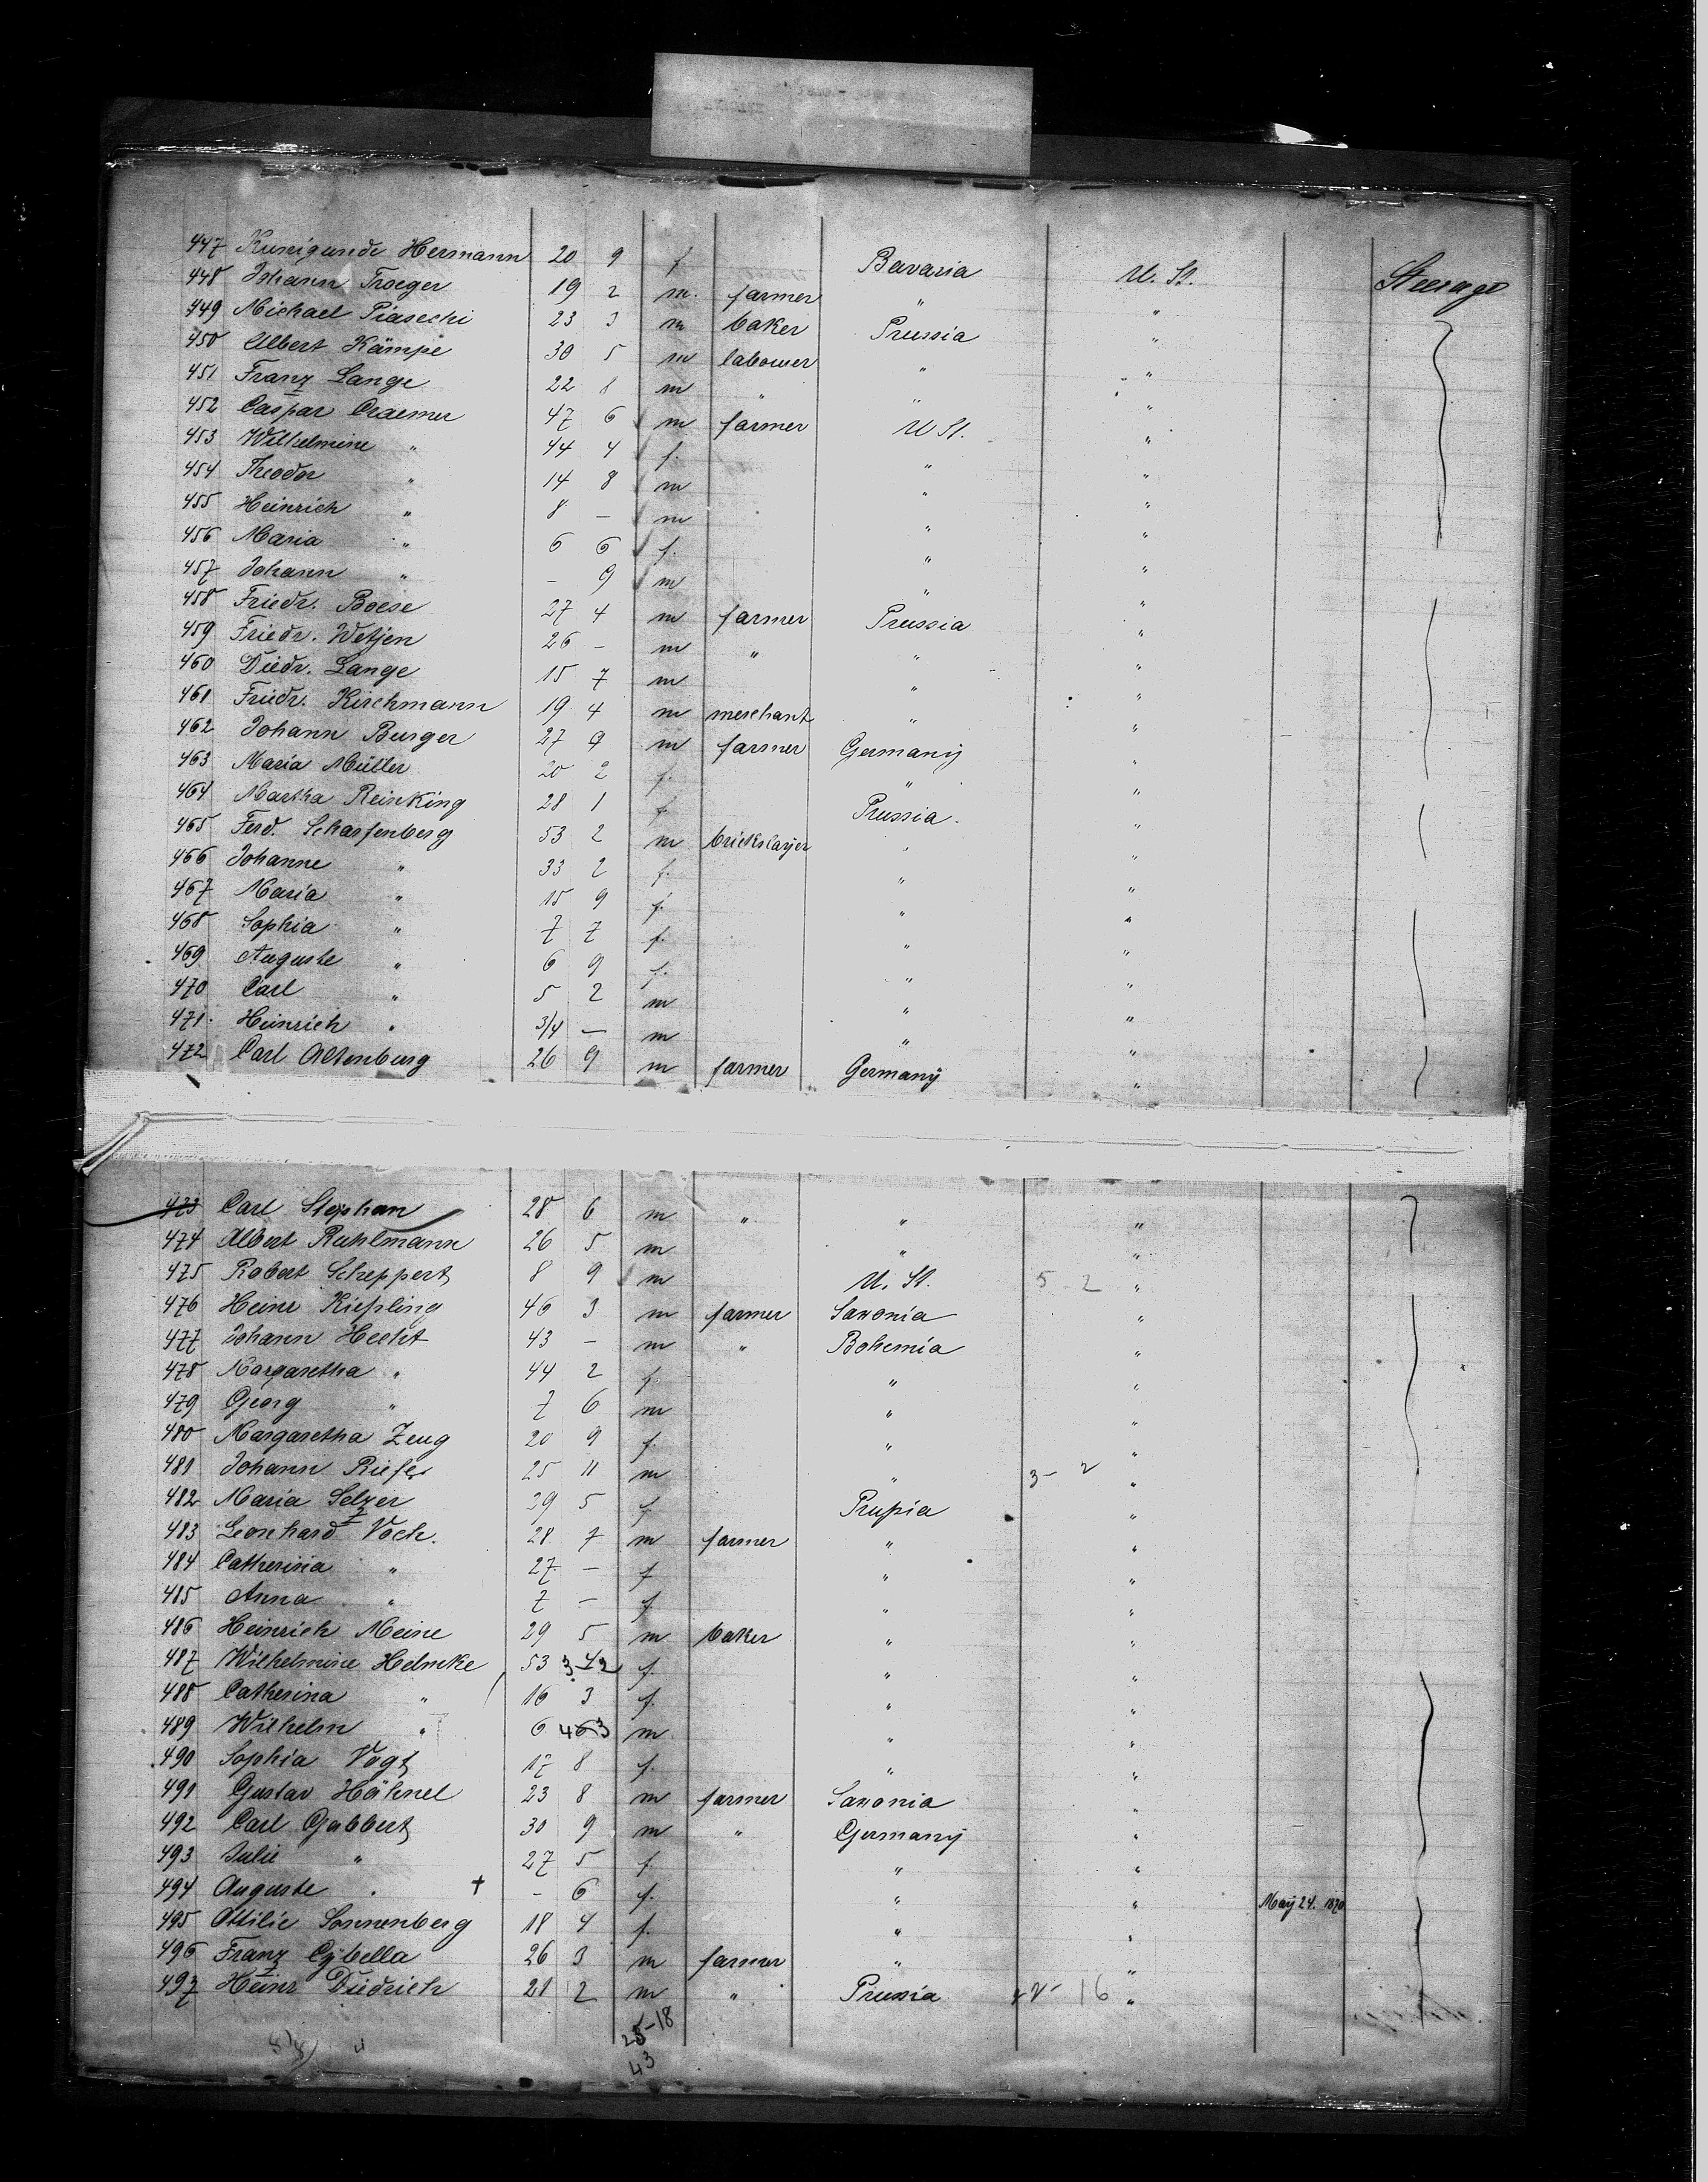 447 Kunigunde Hermann 20 9 f Bavaria U. St. Steerage
448 Johann Troeger 19 2 m. farmer " "
449 Michael Piasecki 23 3 m baker Prussia "
450 Albert Kämpe 30 5 m labourer " "
451 Franz Lange 22 8 m " " "
452 Caspar Craemer 47 6 m farmer U St. "
453 Wilhelmine " 44 4 f. " "
454 Theodor " 14 8 m " "
455 Heinrich " 8 – m " "
456 Maria " 6 6 f. " "
457 Johann " – 9 m " "
458 Friedr. Boese 27 4 m farmer Prussia "
459 Friedr. Wetjen 26 – m " " "
460 Diedr. Lange 15 7 m " "
461 Friedr. Kirchmann 19 4 m merchant " "
462 Johann Burger 27 9 m farmer Germany "
463 Maria Müller 20 2 f. " "
464 Martha Reinking 28 1 f. Prussia. "
465 Ferd. Scharfenberg 53 2 m brickslayer " "
466 Johanne " 33 2 f. " "
467 Maria " 15 9 f. " "
468 Sophia " 7 7 f. " "
469 Auguste " 6 9 f. " "
470 Carl " 5 2 m " "
471. Heinrich " 3/4 – m " "
472 Carl Altenburg 26 9 m farmer Germany "
473 Carl Stephan 28 6 m " " "
474 Albert Ruhlmann 26 5 m " "
475 Robert Scheppert 8 9 m U. St. 5 - 2 "
476 Heinr Kießling 46 3 m farmer Saxonia "
477 Johann Hecht 43 – m " Bohemia "
478 Margaretha " 44 2 f. " "
479 Georg " 7 6 m " "
480 Margaretha Zeug 20 9 f. " "
481 Johann 25 11 m " 3 - 2 "
482 Maria Selzer 29 5 f Prußia "
483 Leonhard Voch. 28 7 m farmer " "
484 Catherina " 27 – f " "
485 Anna " 7 – f. " "
486 Heinrich Meine 29 5 m baker " "
487 Wilhelmine Helmke 53 f. " "
488 Catherina " 16 3 f. " "
489 Wilhelm " 6 m " "
490 Sophia Vogt 17 8 f. " "
491 Gustav Hähnel 23 8 m farmer Saxonia "
492 Carl Gabbert 30 9 m " Germany "
493 Julie " 27 5 f. " "
494 Auguste " † – 6 f. " " May 24. 1870
495 Ottilie Sonnenberg 18 4 f. " "
496 Franz Cybella 26 3 m farmer " "
497 Heinr Diedrich 21 2 m " Prussia 16 "
25-18
43